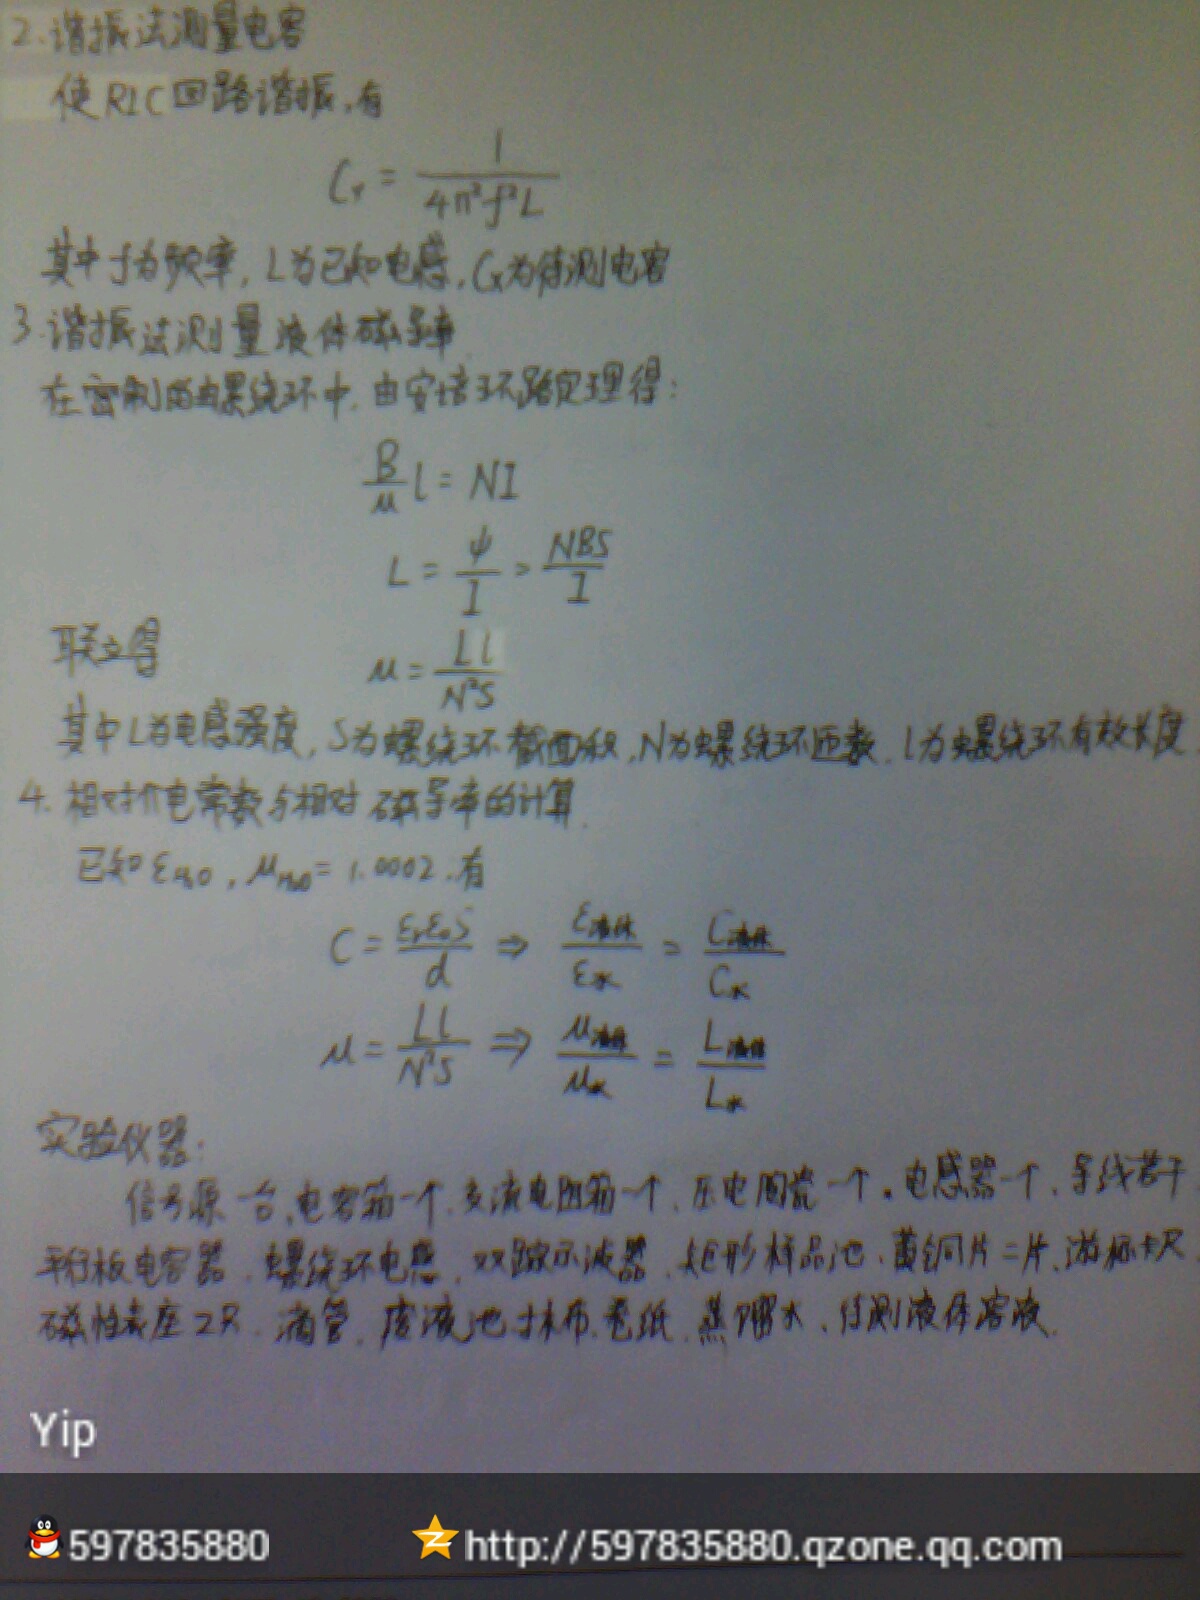 2. 谐振法测量电容
使RLC回路谐振,有
Cx = 1 / 4π²f²L
其中f为频率, L为已知电感, Cx为待测电容
3. 谐振法测量液体磁导率
在密制的螺绕环中, 由安培环路定理得:
B/μ l = NI
L = ψ/I = NBS/I
联立得 μ = Ll / N²S
其中L为电感强度, S为螺绕环截面积, N为螺绕环匝数, l为螺绕环有效长度
4. 相对介电常数与相对磁导率的计算
已知 εH₂O, μH₂O = 1.0002, 有
C = εrε₀S / d ⇒ ε液体 / ε水 = C液体 / C水
μ = Ll / N²S ⇒ μ液体 / μ水 = L液体 / L水
实验仪器:
信号源一台, 电容箱一个, 交流电阻箱一个, 压电陶瓷一个, 电感器一个, 导线若干
平行板电容器, 螺绕环电感, 双踪示波器, 矩形样品池, 黄铜片二片, 游标卡尺
磁性表座2只, 滴管, 废液池, 抹布, 卷纸, 蒸馏水, 待测液体溶液.
Yip
597835880 http://597835880.qzone.qq.com